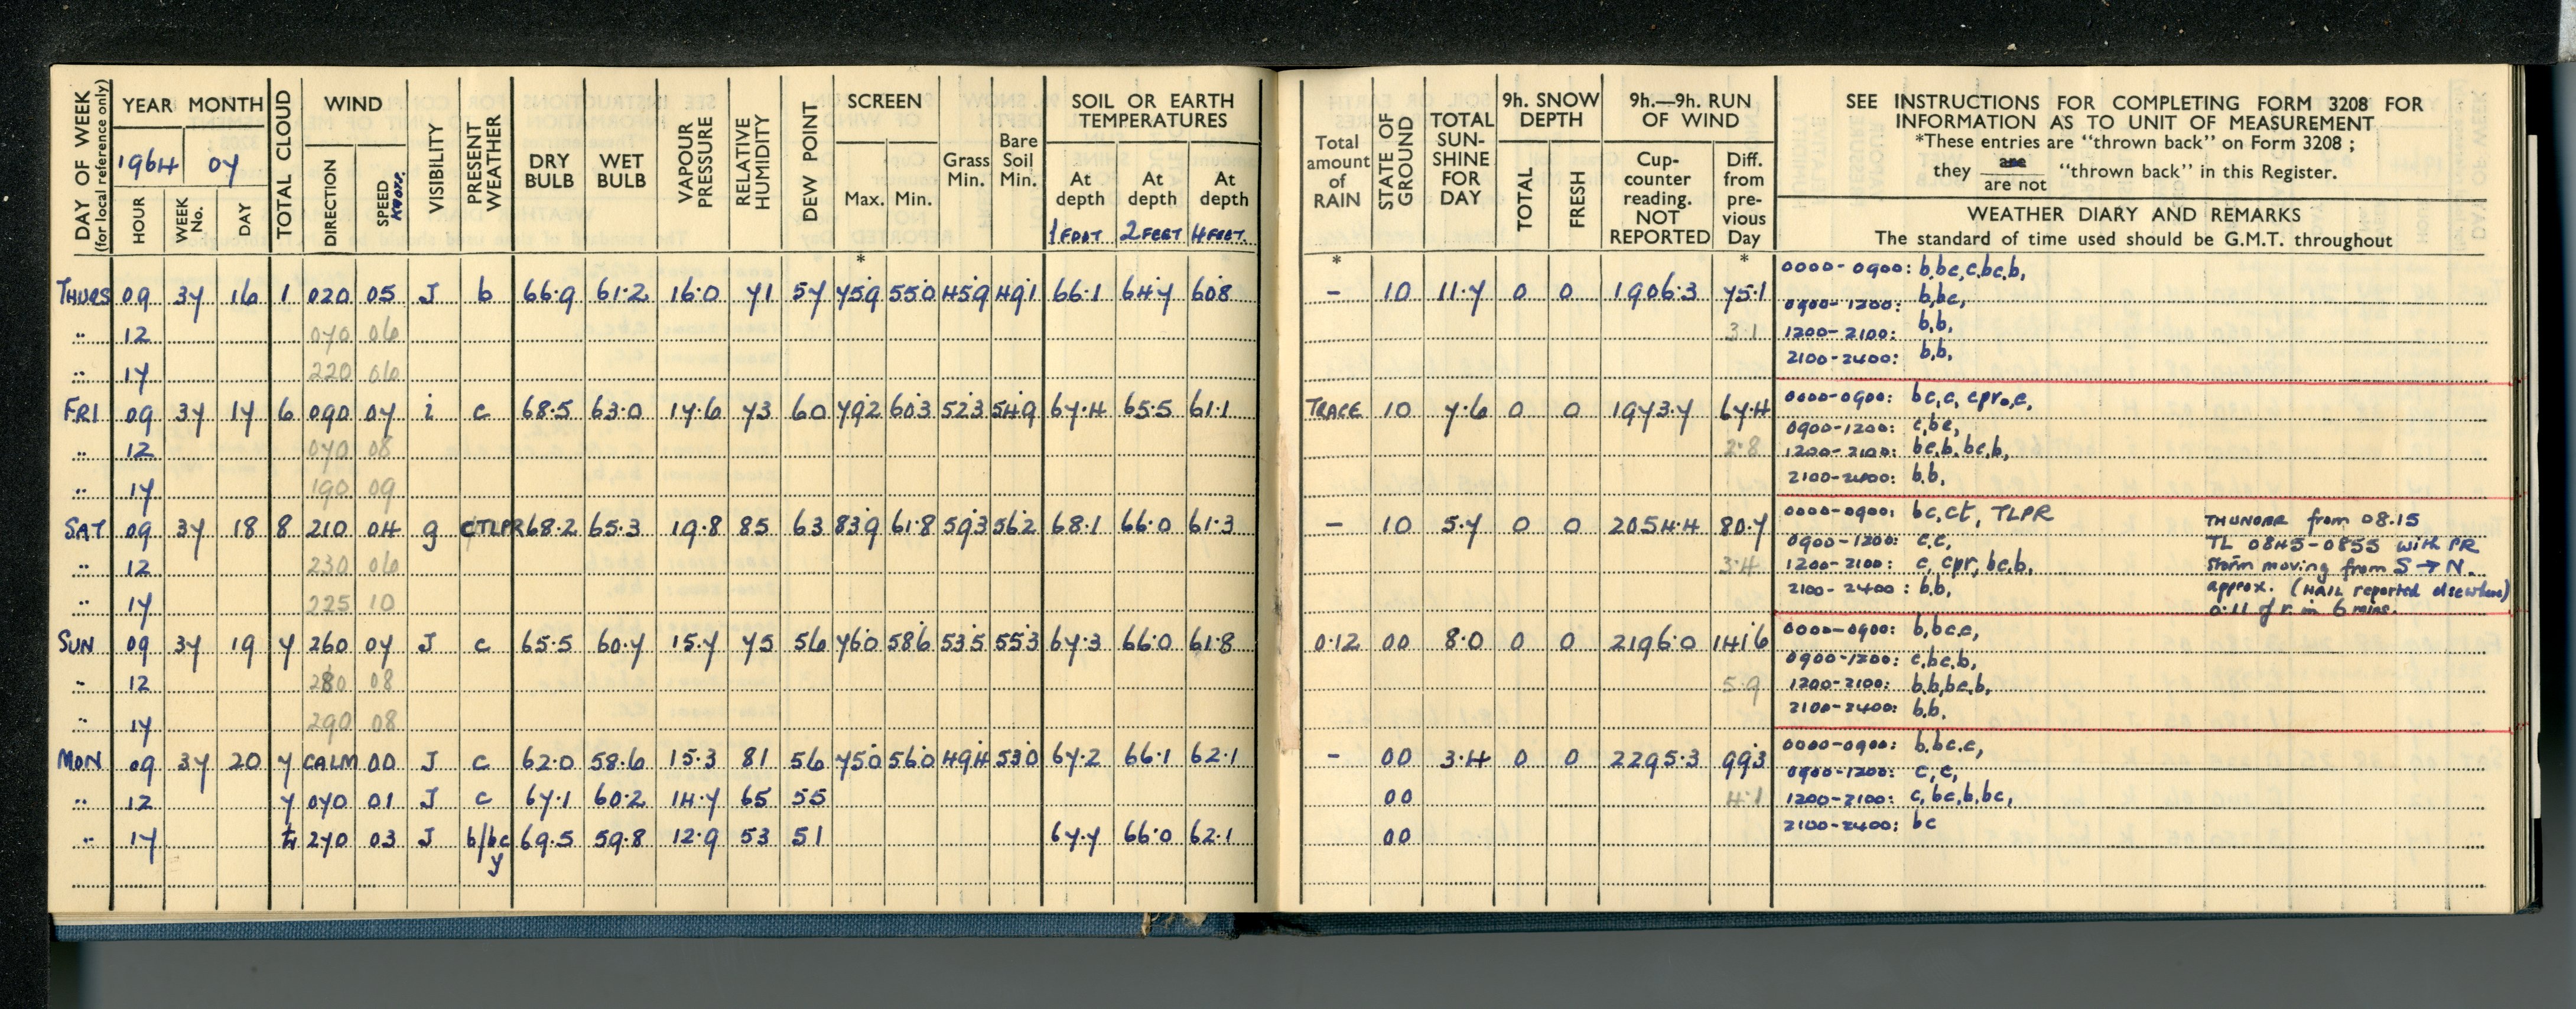 DAY OF WEEK
(for local reference only)
YEAR MONTH
1964 07
HOUR
WEEK No.
DAY
TOTAL CLOUD
WIND
DIRECTION
SPEED KNOTS
VISIBILITY
PRESENT WEATHER
DRY BULB
WET BULB
VAPOUR PRESSURE
RELATIVE HUMIDITY
DEW POINT
SCREEN
Max. Min.
Grass Min.
Bare Soil Min.
SOIL OR EARTH TEMPERATURES
At depth 1 FOOT
At depth 2 FEET
At depth 4 FEET.
Total amount of RAIN
STATE OF GROUND
TOTAL SUN-SHINE FOR DAY
9h. SNOW DEPTH
TOTAL
FRESH
9h.—9h. RUN OF WIND
Cup-counter reading. NOT REPORTED
Diff. from pre-vious Day
SEE INSTRUCTIONS FOR COMPLETING FORM 3208 FOR
INFORMATION AS TO UNIT OF MEASUREMENT
*These entries are "thrown back" on Form 3208 ;
they are / are not "thrown back" in this Register.
WEATHER DIARY AND REMARKS
The standard of time used should be G.M.T. throughout
* * *
THURS 09 37 16 1 020 05 J b 66.9 61.2 16.0 71 57 75.9 55.0 45.9 49.1 66.1 64.7 60.8 – 10 11.7 0 0 1906.3 75.1
.. 12 070 06 3.1
.. 17 220 06
0000-0900: b,bc,c,bc,b,
0900-1200: b,bc,
1200-2100: b,b,
2100-2400: b,b,
FRI 09 37 17 6 090 07 i c 68.5 63.0 17.6 73 60 79.2 60.3 52.3 54.9 67.4 65.5 61.1 TRACE 10 7.6 0 0 1973.7 67.4
.. 12 070 08 2.8
.. 17 190 09
0000-0900: bc,c, cpr₀,c,
0900-1200: c,bc,
1200-2100: bc,b,bc,b,
2100-2400: b,b,
SAT 09 37 18 8 210 04 g cTLPR 68.2 65.3 19.8 85 63 83.9 61.8 59.3 56.2 68.1 66.0 61.3 – 10 5.7 0 0 2054.4 80.7
.. 12 230 06 3.4
.. 17 225 10
0000-0900: bc,ct, TLPR
0900-1200: c,c,
1200-2100: c, cpr, bc,b,
2100-2400: b,b,
THUNDER from 08.15
TL 0845-0855 with PR
Storm moving from S→N.
approx. (HAIL reported elsewhere)
0.11 of r in 6 mins.
SUN 09 37 19 7 260 07 J c 65.5 60.7 15.7 75 56 76.0 58.6 53.5 55.3 67.3 66.0 61.8 0.12 00 8.0 0 0 2196.0 141.6
.. 12 280 08 5.9
.. 17 290 08
0000-0900: b,bc,c,
0900-1200: c,bc,b,
1200-2100: b,b,bc,b,
2100-2400: b,b,
MON 09 37 20 7 CALM 00 J c 62.0 58.6 15.3 81 56 75.0 56.0 49.4 53.0 67.2 66.1 62.1 – 00 3.4 0 0 2295.3 99.3
.. 12 7 070 01 J c 67.1 60.2 14.7 65 55 00 4.1
.. 17 270 03 J b/bc y 69.5 59.8 12.9 53 51 67.7 66.0 62.1 00
0000-0900: b,bc,c,
0900-1200: c,c,
1200-2100: c,bc,b,bc,
2100-2400: bc